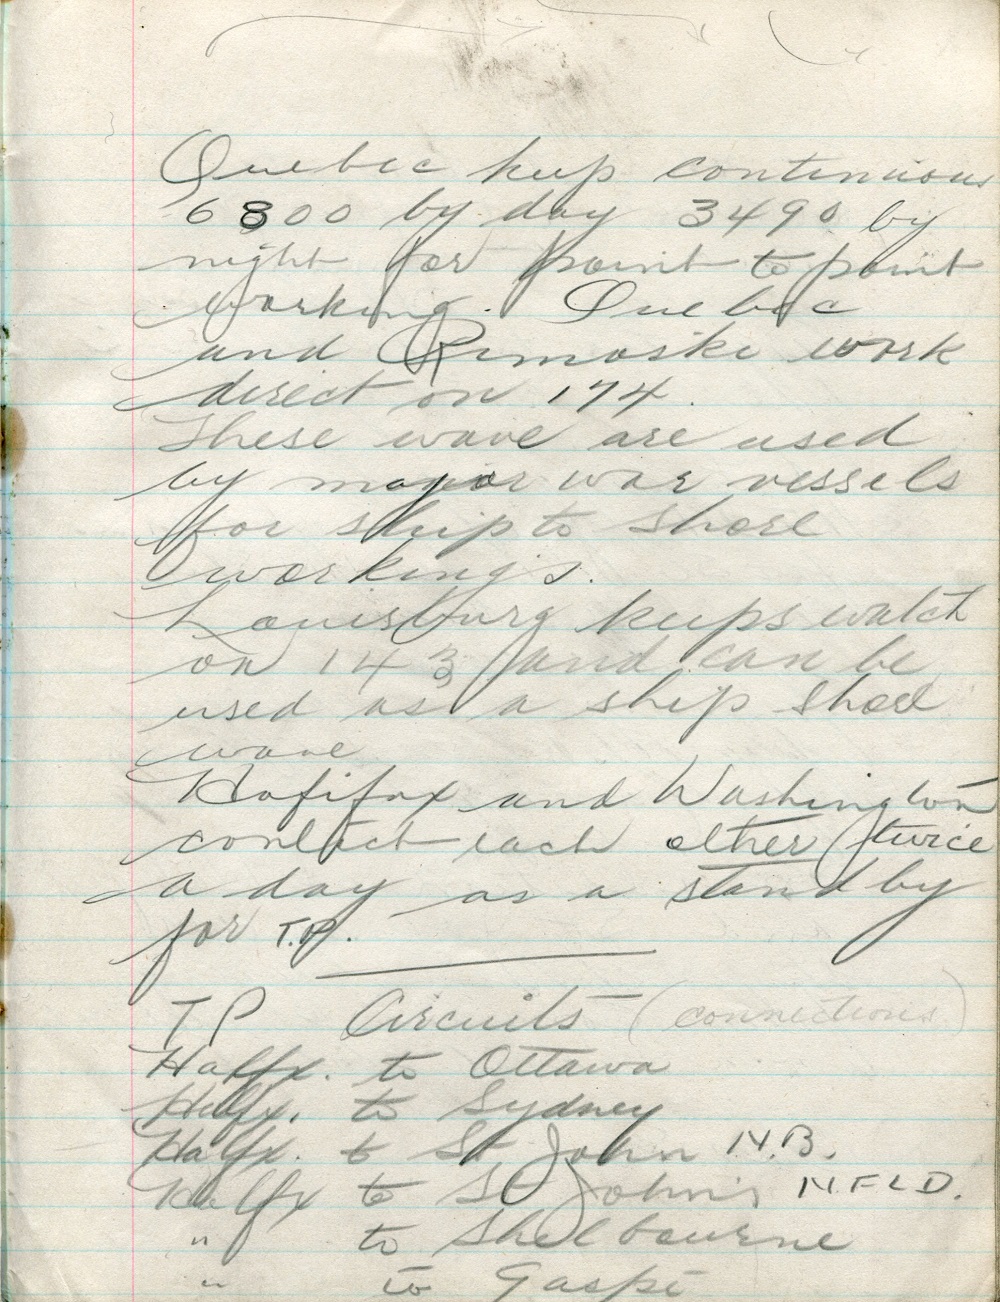 Quebec keep continuous
6800 by day 3490 by
night for point to point
working. Quebec
and Rimoski work
direct on 174.
These wave are used
by major war vessels
for ship to shore
workings.
Louisburg keeps watch
on 143 and can be
used as a ship shore
wave
Hafifax and Washington
contact each other twice
a day as a stand by
for T.P.
TP Circuits (connections)
Halfx. to Ottawa
Halfx. to Sydney
Halfx. to St John N.B.
Halfx to St John's N.F.L.D.
" to Shelbourne
" to Gaspé